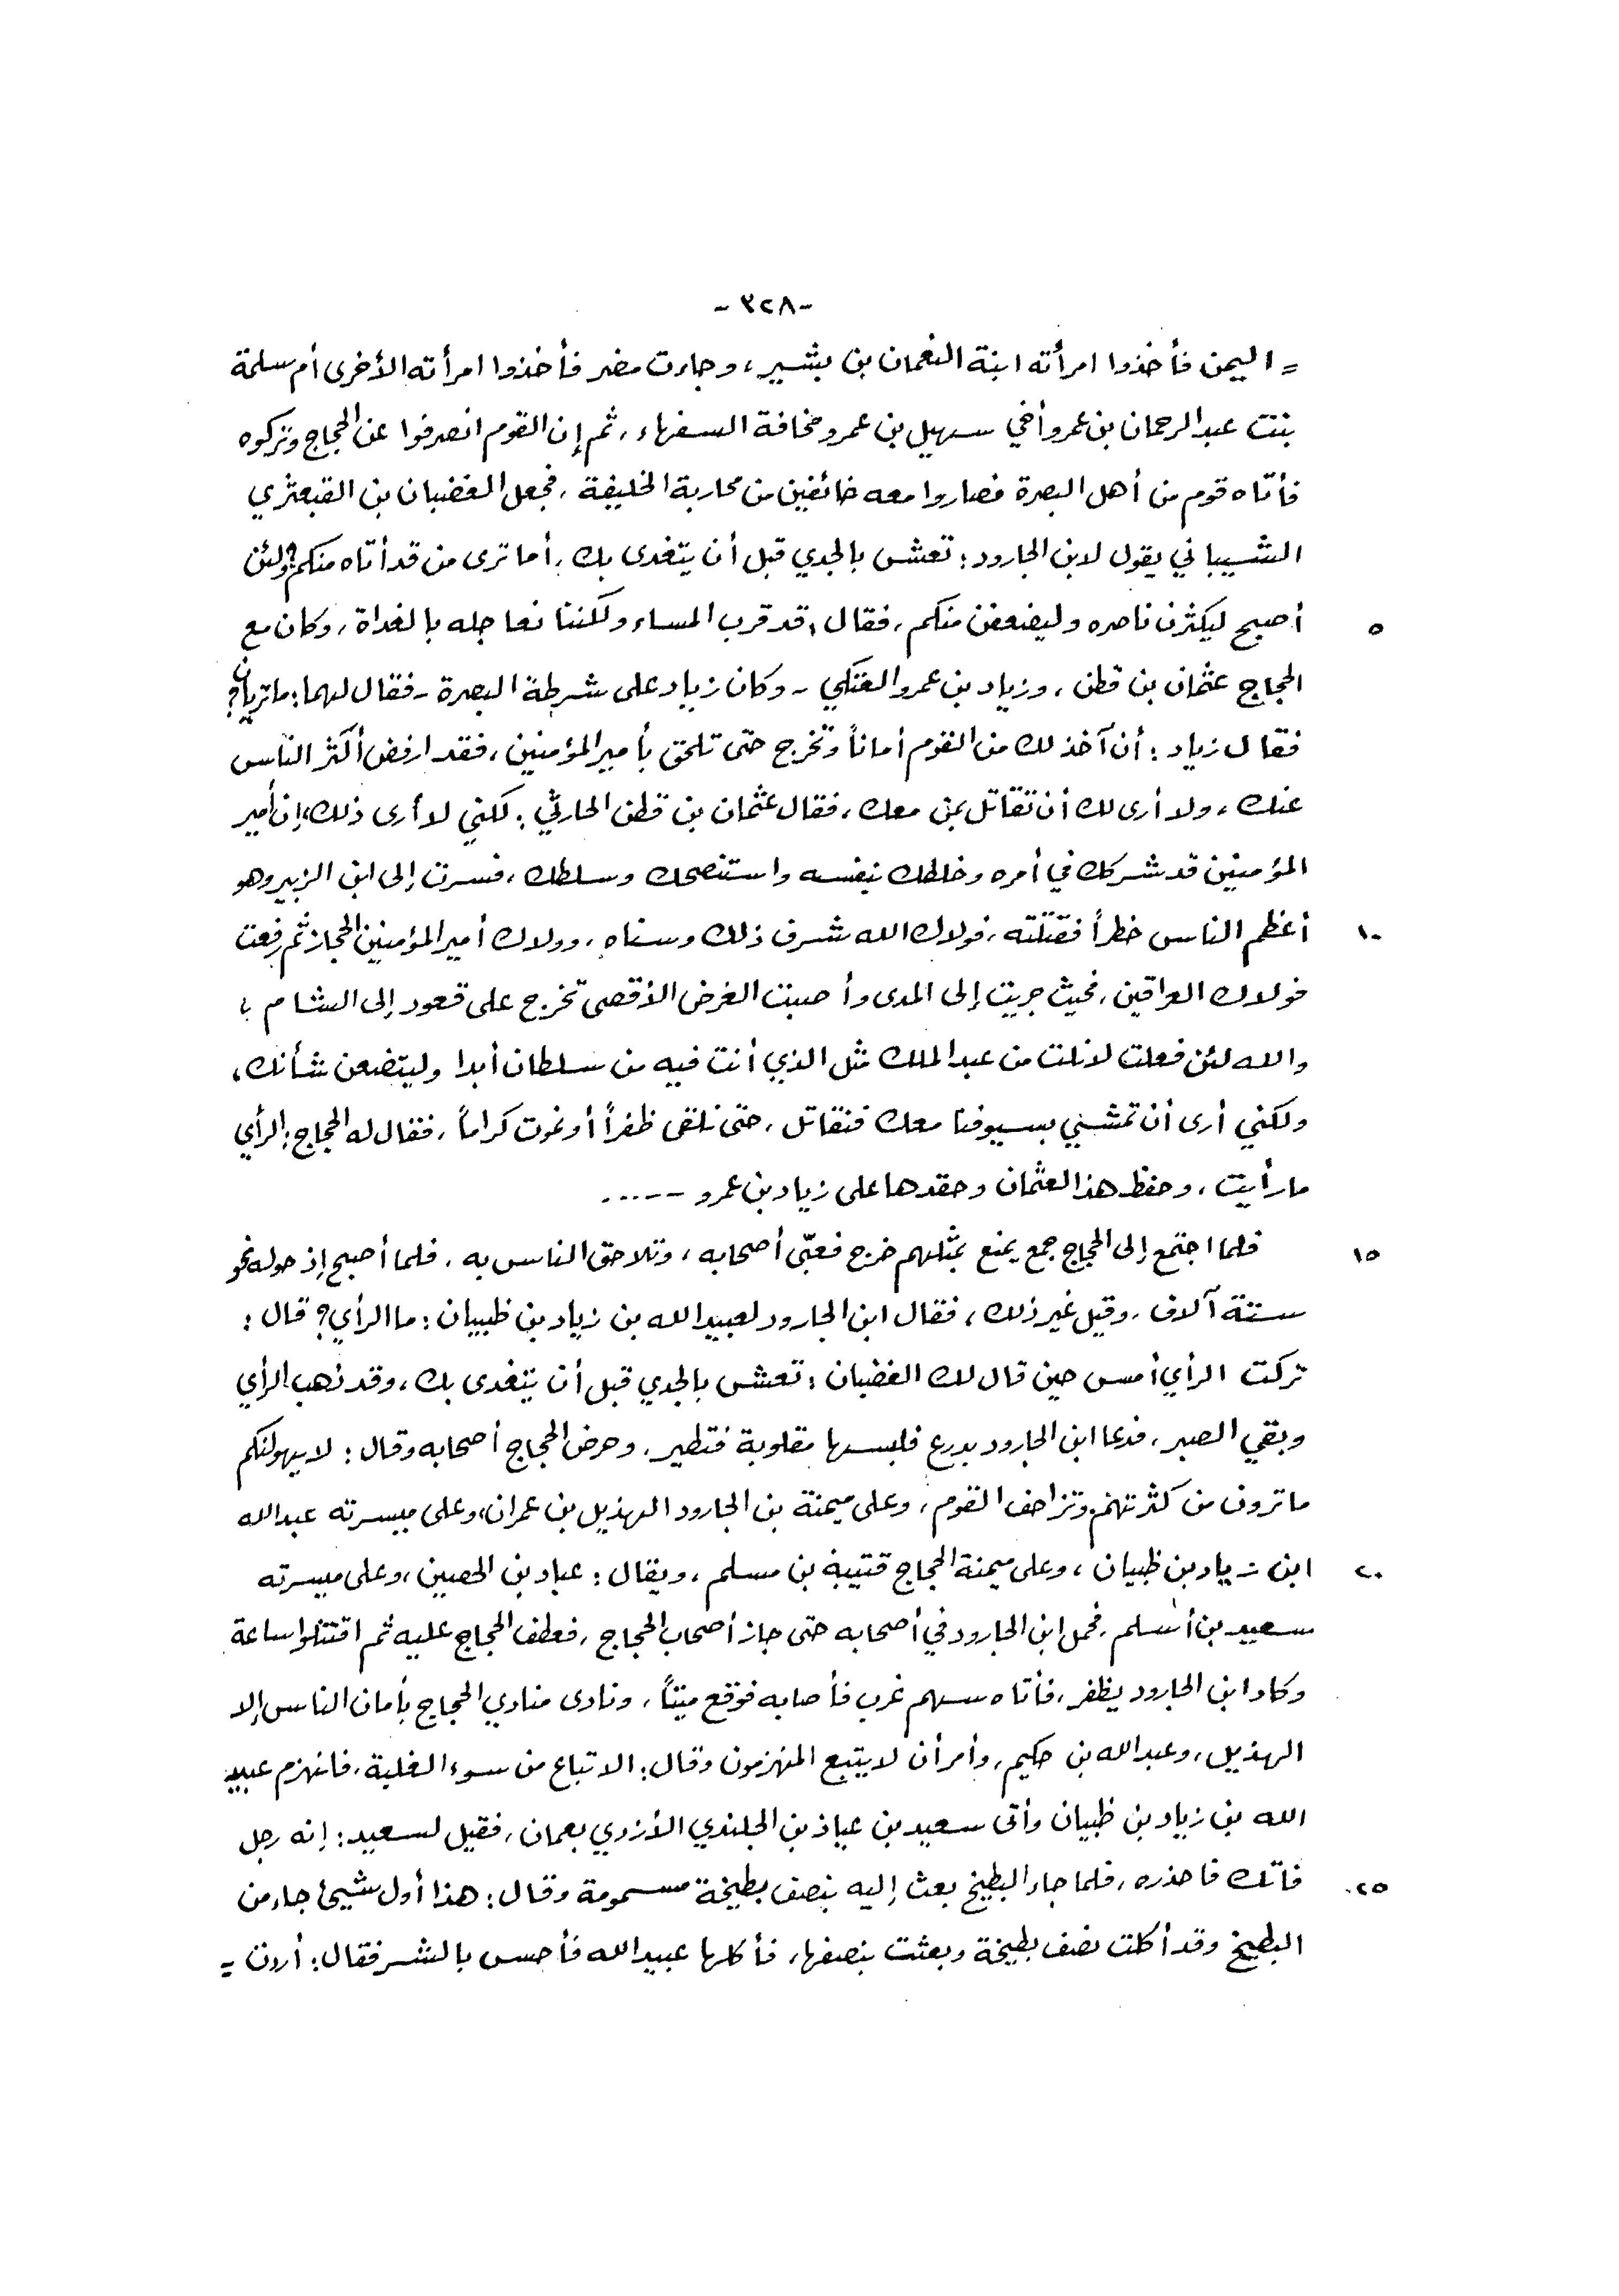 -٣٢٨-
= اليمن فأخذوا امرأته ابنة النعمان بن بشير، وجاءت مضر فأخذوا امرأته الأخرى أم سلمة
بنت عبد الرحمان بن عمرو أخي سهيل بن عمرو مخافة السفهاء، ثم إن القوم انصرفوا عن الحجاج وتركوه
فأتاه قوم من أهل البصرة فصاروا معه خائفين من محاربة الخليفة، فجعل الغضبان بن القبعثري
الشيباني يقول لابن الجارود: تعشى بالجدي قبل أن يتغدى بك، أما ترى من قد أتاه منكم؟ ولئن
٥ أصبح ليكثرن ناصره وليضعفن منكم، فقال: قد قرب المساء ولكننا نعاجله بالغداة، وكان مع
الحجاج عثمان بن قطن، وزياد بن عمرو العتكي - وكان زياد على شرطة البصرة - فقال لهما: ما تريان؟
فقال زياد: أن آخذ لك من القوم أماناً وتخرج حتى تلحق بأمير المؤمنين، فقد ارفض أكثر الناس
عنك، ولا أرى لك أن تقاتل بمن معك، فقال عثمان بن قطن الحارثي: لكني لا أرى ذلك، إن أمير
المؤمنين قد شركك في أمره وخلطك بنفسه واستنصحك وسلطك، فسرت إلى ابن الزبير وهو
١٠ أعظم الناس خطراً فقتلته، فولاك الله شرف ذلك وسناه، وولاك أمير المؤمنين الحجاز ثم رفعت
فولاك العراقين، فحيث جريت إلى المدى وأصبت الغرض الأقصى تخرج على قعود إلى الشام ؟
والله لئن فعلت لانلت من عبد الملك مثل الذي أنت فيه من سلطان أبدا وليتضعن شأنك،
ولكني أرى أن تمشي بسيوفنا معك فنقاتل، حتى نلقى ظفراً أو نموت كراماً، فقال له الحجاج: الرأي
ما رأيت، وحفظ هذا لعثمان وحقدها على زياد بن عمرو -----
١٥ فلما اجتمع إلى الحجاج جمع يمنع بمثلهم خرج فعبّى أصحابه، وتلاحق الناس به، فلما أصبح إذ حوله نحو
ستة آلاف، وقيل غير ذلك، فقال ابن الجارود لعبيد الله بن زياد بن ظبيان: ما الرأي؟ قال:
تركت الرأي أمس حين قال لك الغضبان: تعشى بالجدي قبل أن يتغدى بك، وقد ذهب الرأي
وبقي الصبر، فدعا ابن الجارود بدرع فلبسها مقلوبة فتطير، وحرض الحجاج أصحابه وقال: لا يهولنكم
ما ترون من كثرتهم، وتزاحف القوم، وعلى ميمنة بن الجارود الهذيل بن عمران، وعلى ميسرته عبد الله
٢٠ ابن زياد بن ظبيان، وعلى ميمنة الحجاج قتيبة بن مسلم، ويقال: عباد بن الحصين، وعلى ميسرته
سعيد بن أسلم، فحمل ابن الجارود في أصحابه حتى جاز أصحاب الحجاج، فعطف الحجاج عليه ثم اقتتلوا ساعة
وكاد ابن الجارود يظفر، فأتاه سهم غرب فأصابه فوقع ميتاً، ونادى منادي الحجاج بأمان الناس إلا
الهذيل، وعبد الله بن حكيم، وأمر أن لا يتبع المنهزمون وقال: الاتباع من سوء الغلبة، فانهزم عبيد
الله بن زياد بن ظبيان وأتى سعيد بن عياذ بن الجلندي الأزدي بعمان، فقيل لسعيد: إنه رجل
٢٥ فاتك فاحذره، فلما جاء البطيخ بعث إليه بنصف بطيخة مسمومة وقال: هذا أول شيئ جاء من
البطيخ وقد أكلت نصف بطيخة وبعثت بنصفها، فأكلها عبيد الله فأحس بالشر فقال: أردت =